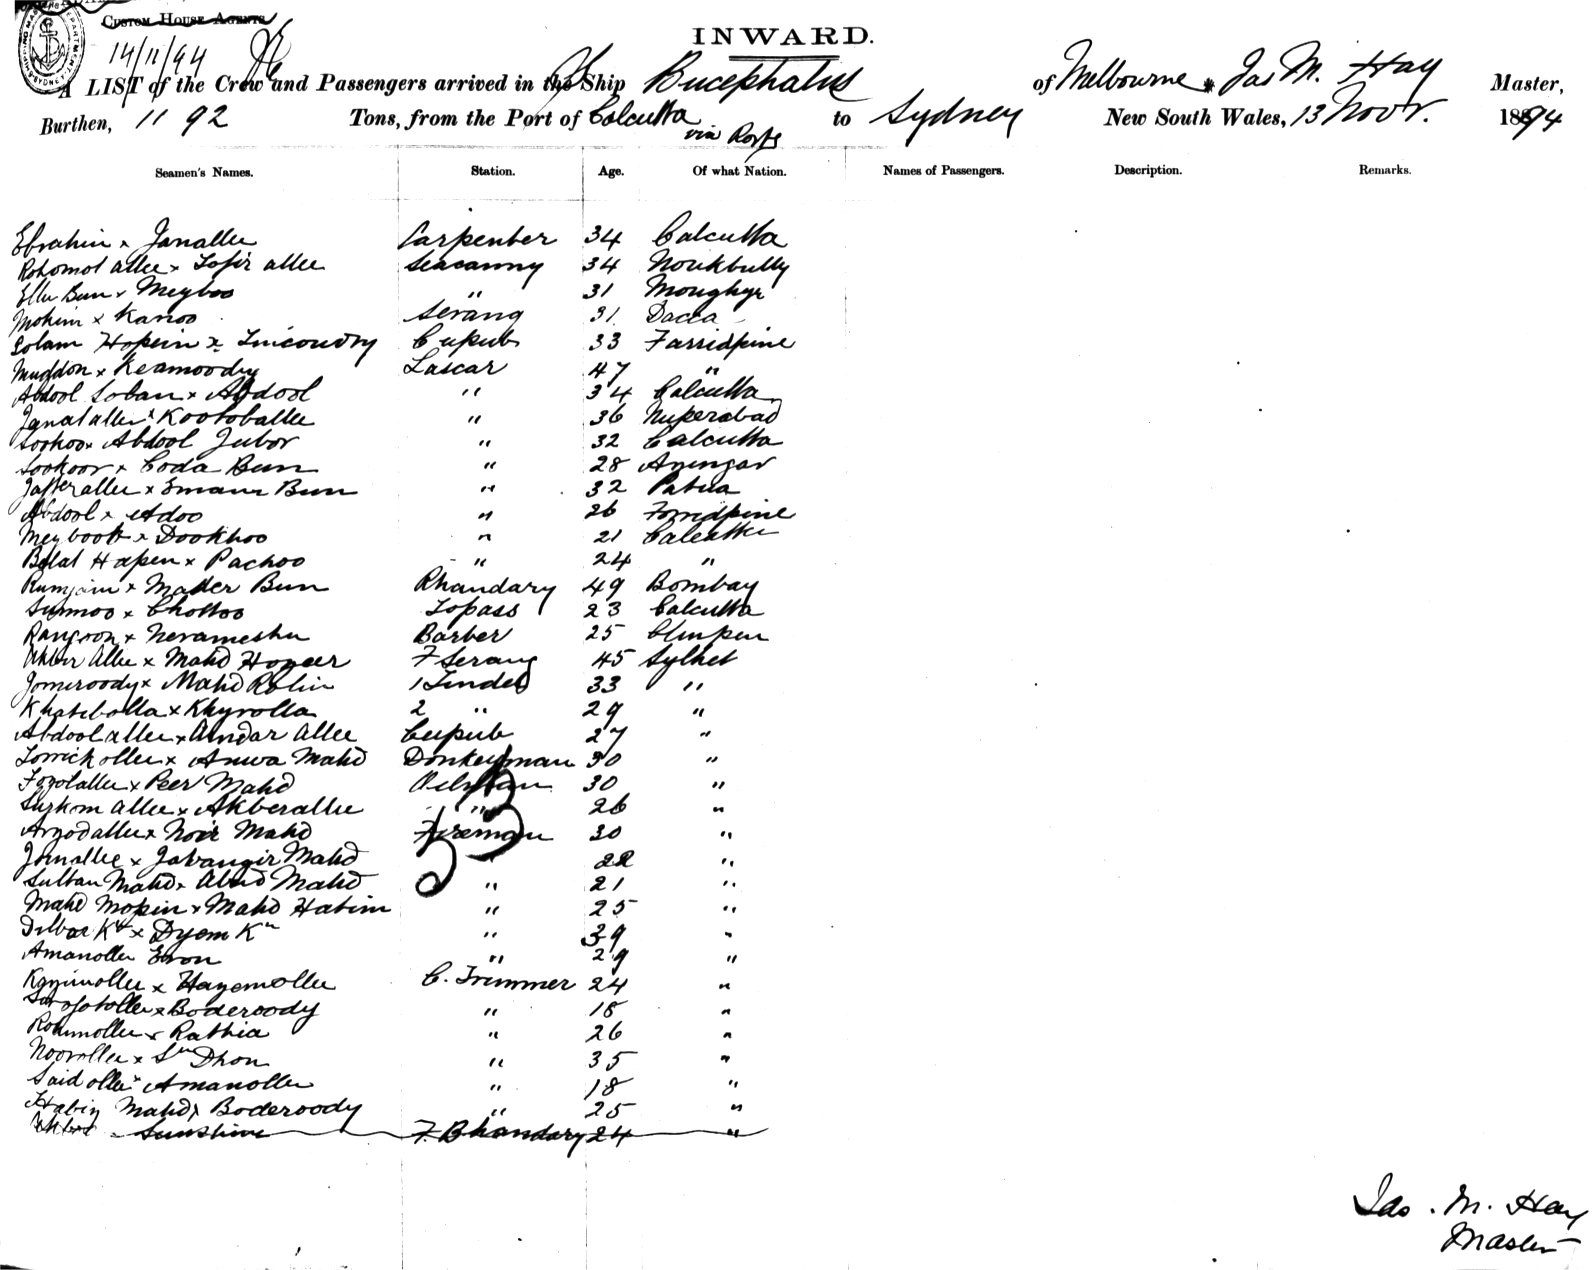 CUSTOM HOUSE AGENTS
14/11/94
INWARD.
A LIST of the Crew and Passengers arrived in the Ship Bucephalus of Melbourne Jas M. Hay Master,
Burthen, 1192 Tons, from the Port of Calcutta via Ports to Sydney New South Wales, 13 Novr. 1894
Seamen's Names. Station. Age. Of what Nation. Names of Passengers. Description. Remarks.
Ebrahim x Janallee Carpenter 34 Calcutta
Rohomot allee x Tofir allee Seacunny 34
Ellu Bun x Meyboo " 31 Monghyr
Mohim x Kanoo Serang 31 Dacca
Golam Hosein x Cupub 33 Farridpine
Muddon x Keamoody Lascar 47 "
Abdool Soban x Abdool " 34 Calcutta
Janatallee x Kootoballee " 36
Sookoo x Abdool Jubor " 32 Calcutta
Sookoor x Coda Bun " 28
Jafferallee x Emam Bun " 32 Patna
Abdool x Adoo " 26 Forridpine
Meybook x Dookhoo " 21 Calcutta
Belat Hasen x Pachoo " 24 "
Rumjan x Mader Bun Bhandary 49 Bombay
Summoo x Chottoo Topass 23 Calcutta
Rangoon x Barber 25
Akber Allee x Mahd Honeer F Serang 45 Sylhet
Jomeroody x Mahd Robin 1 Tindel 33 "
Khatibolla x Khyrolla 2 " 29 "
Abdoolallee x Amdar Allee Cupub 27 "
Torrickollee x Anwa Mahd Donkeyman 30 "
Fozolallee x Peer Mahd Oilman 30 "
Surkom Allee x Akberallee " 26 "
Arzodallee x Noor Mahd Fireman 30 "
Jomallee x Jahangir Mahd " 22 "
Sultan Mahd x Abud Mahd " 21 "
Mahd Mosin x Mahd Hatim " 25 "
Dilbar Kn x Dyem Kn " 39 "
Amanollee Eron " 29 "
Karimollee x Hayemollee C. Trimmer 24 "
x Boderoody " 18 "
Rohimollee x Rathia " 26 "
Noorollee x Sn Dhon " 35 "
Saidollee x Amanollee " 18 "
Habiz Mahd x Boderoody " 25 "
Sunshine F. Bhandary 24 "
Jas. M. Hay
Master